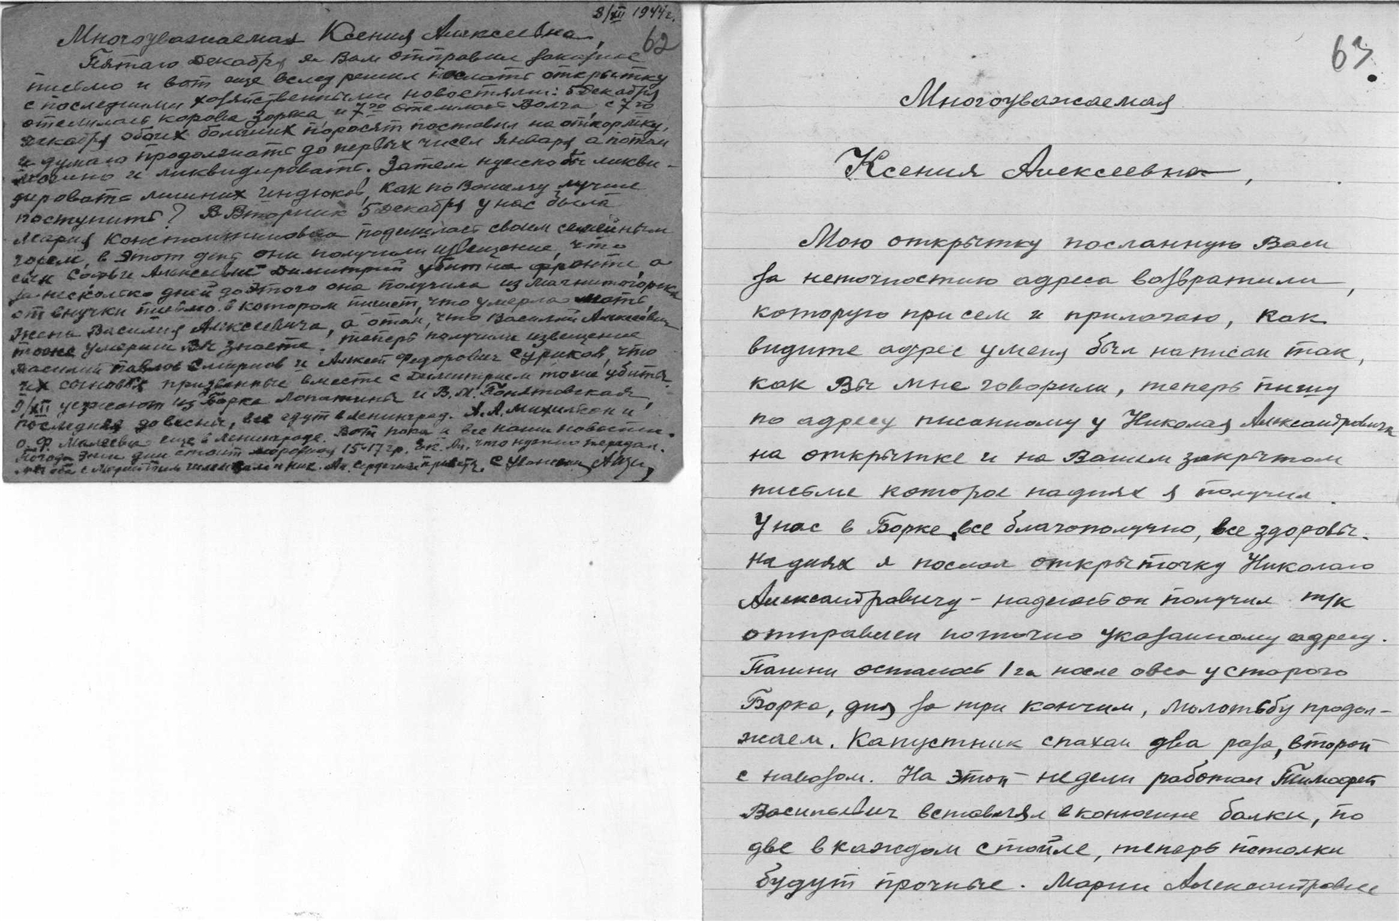 8/XII 1944г.
62
Многоуважаемая Ксения Алексеевна,
Пятаго Декабря я Вам отправил заказное
письмо и вот еще вслед решил послать открытку
с последними хозяйственными новостями: 5 декабря
отелилась корова Зорка и 7го отелилась Волга, с 7го
декабря обоих больших поросят поставил на откормку,
и думаю продолжать до первых чисел Января, а потом
можно и ликвидировать. Затем нужно бы ликви-
дировать лишних индюков, как по Вашему лучше
поступить? В Вторник 5 декабря у нас была
Мария Константиновна поделилась своим семейным
горем, в этот день они получили извещение, что
сын Софьи Алексеевны Димитрий убит на фронте, а
за несколько дней до этого она получила из Магнитогорска
от внучки письмо в котором пишет, что умерла мать,
жена Василия Алексеевича, а о том, что Василий Алексеевич
тоже умерли Вы знаете. Теперь получили извещение
Василий Павлов Смирнов и Алексей Федорович Суриков, что
их сыновья призванные вместе с Димитрием тоже убиты.
9/XII уезжают из Борка Лопатины и В.М. Понятовская,
последняя до весны, все едут в Ленинград. А.А. Михильсон и
О.Ф. Малеева еще в Ленинграде. Вот пока и все наши новости.
Погода эти дни стоит морозная 15-17 гр. Ек. Ал. что нужно передал.
Мы оба с Людмилой шлем Вам и Ник. Ал. сердечный привет. С уважением
63.
Многоуважаемая
Ксения Алексеевна,
Мою открытку посланную Вам
за неточностию адреса возвратили,
которую при сем и прилагаю, как
видите адрес у меня был написан так,
как Вы мне говорили, теперь пишу
по адресу писанному у Николая Александровича
на открытке и на Вашем закрытом
письме которое на днях я получил.
У нас в Борке все благополучно, все здоровы.
На днях я послал открыточку Николаю
Александровичу - надеюсь он получил т/к
отправлен по точно указанному адресу.
Пашни осталось 1 га после овса у старого
Борка, дня за три кончим, молотьбу продол-
жаем. Капустник спахал два раза, второй
с навозом. На этой неделе работал Тимофей
Васильевич вставлял в конюшне балки, по
две в каждом стойле, теперь потолки
будут прочные. Марии Александровне